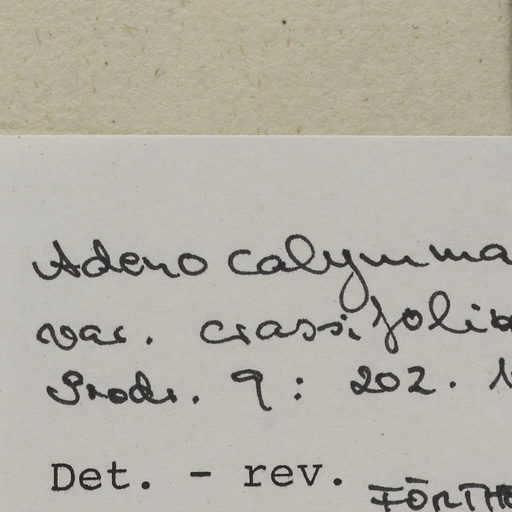 Adeno calymma
var. crassifolia
Prodr. 9: 202. 1
Det. - rev. FÖRTHE